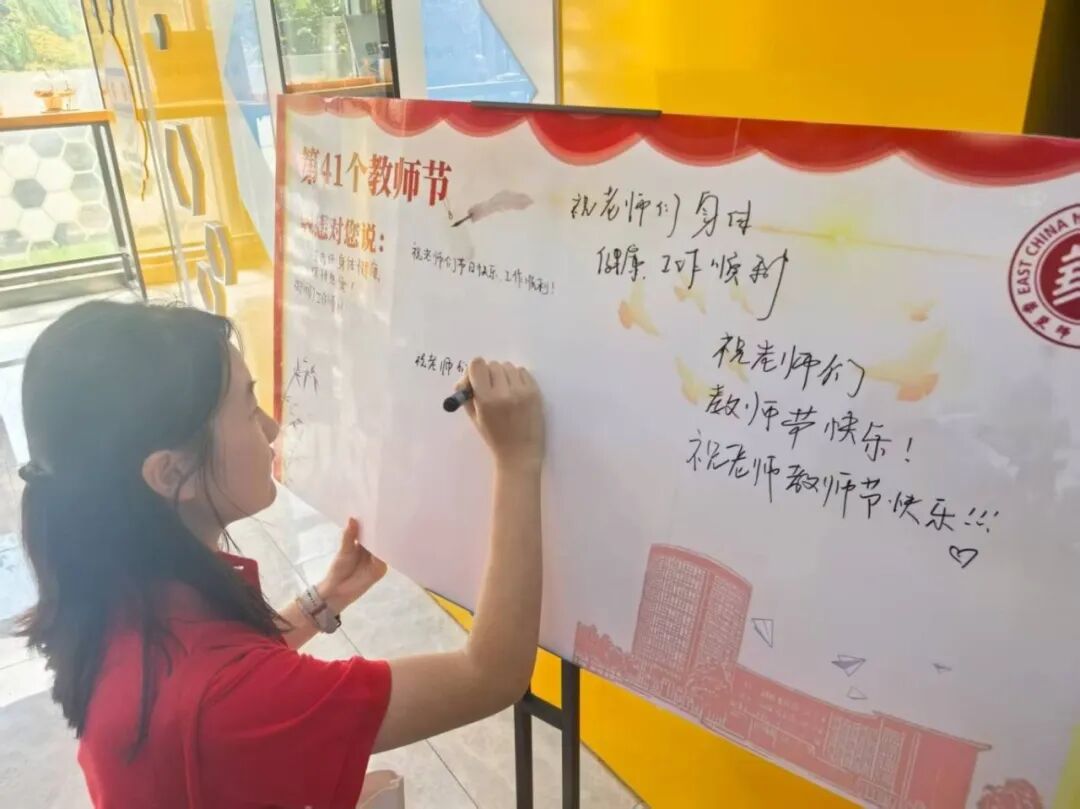 第41个教师节
对您说：
祝老师们节日快乐、工作顺利！
祝老师们
祝老师们身体
健康、工作顺利
祝老师们
教师节快乐！
祝老师教师节快乐!!!
EAST CHINA